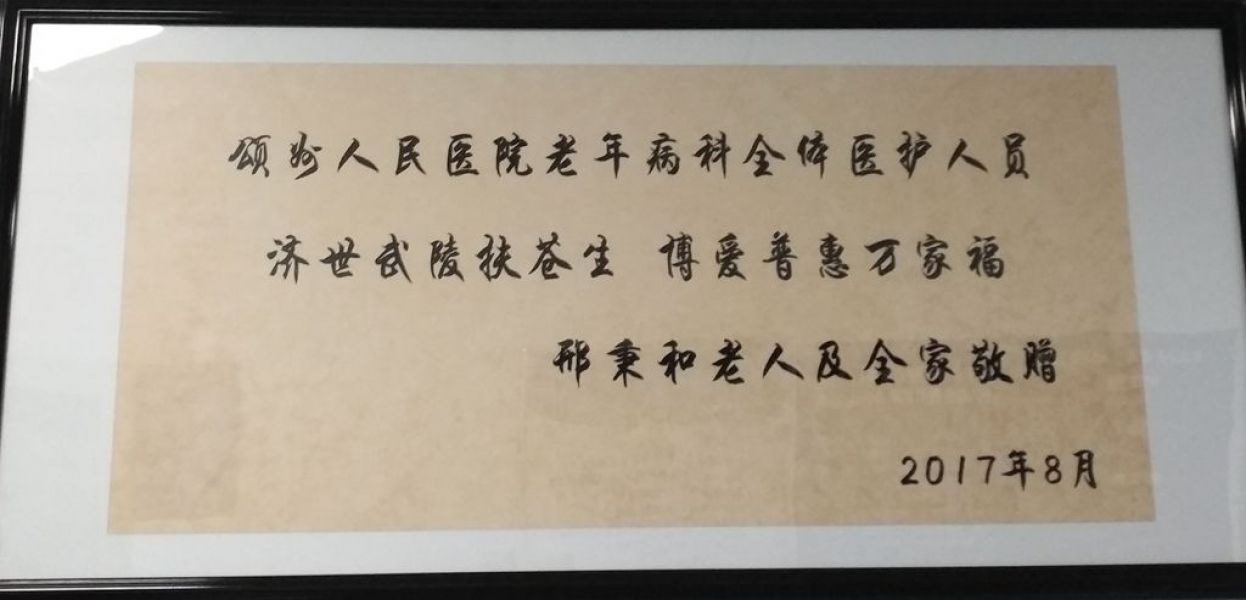 颂州人民医院老年病科全体医护人员
济世武陵扶苍生 博爱普惠万家福
邢秉和老人及全家敬赠
2017年8月